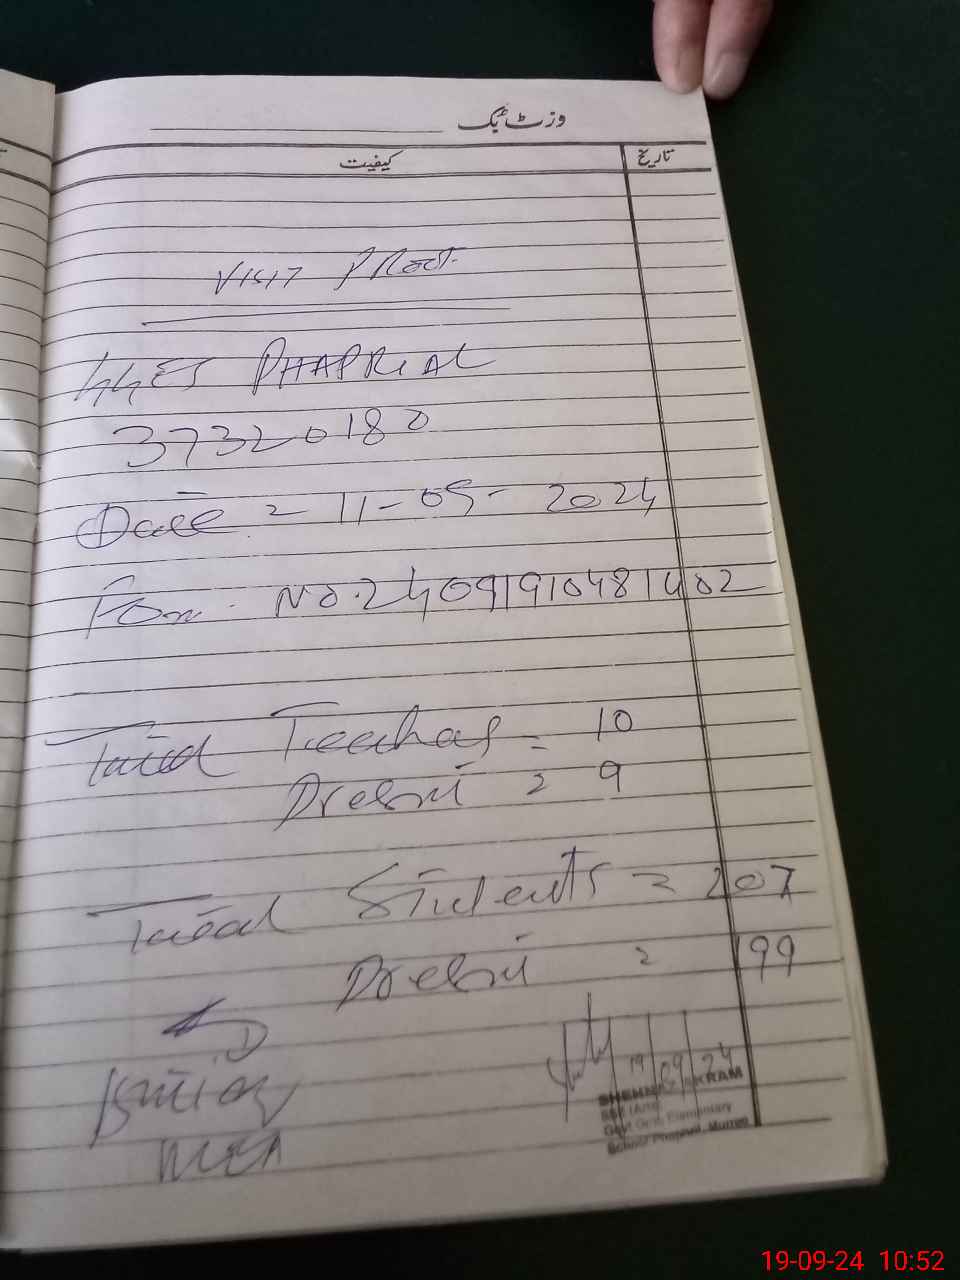 وزٹ بُک
کیفیت
تاریخ
VISIT PROOF
GGES PHAPRIAL
37320180
Date = 11-09-2024
Form No. 24091910481402
Total Teachers = 10
Present = 9
Total Students = 207
Present = 199
MEA
19/09/24
IKRAM
Govt Girls Elementary
School Phaprial, Murree
19-09-24 10:52